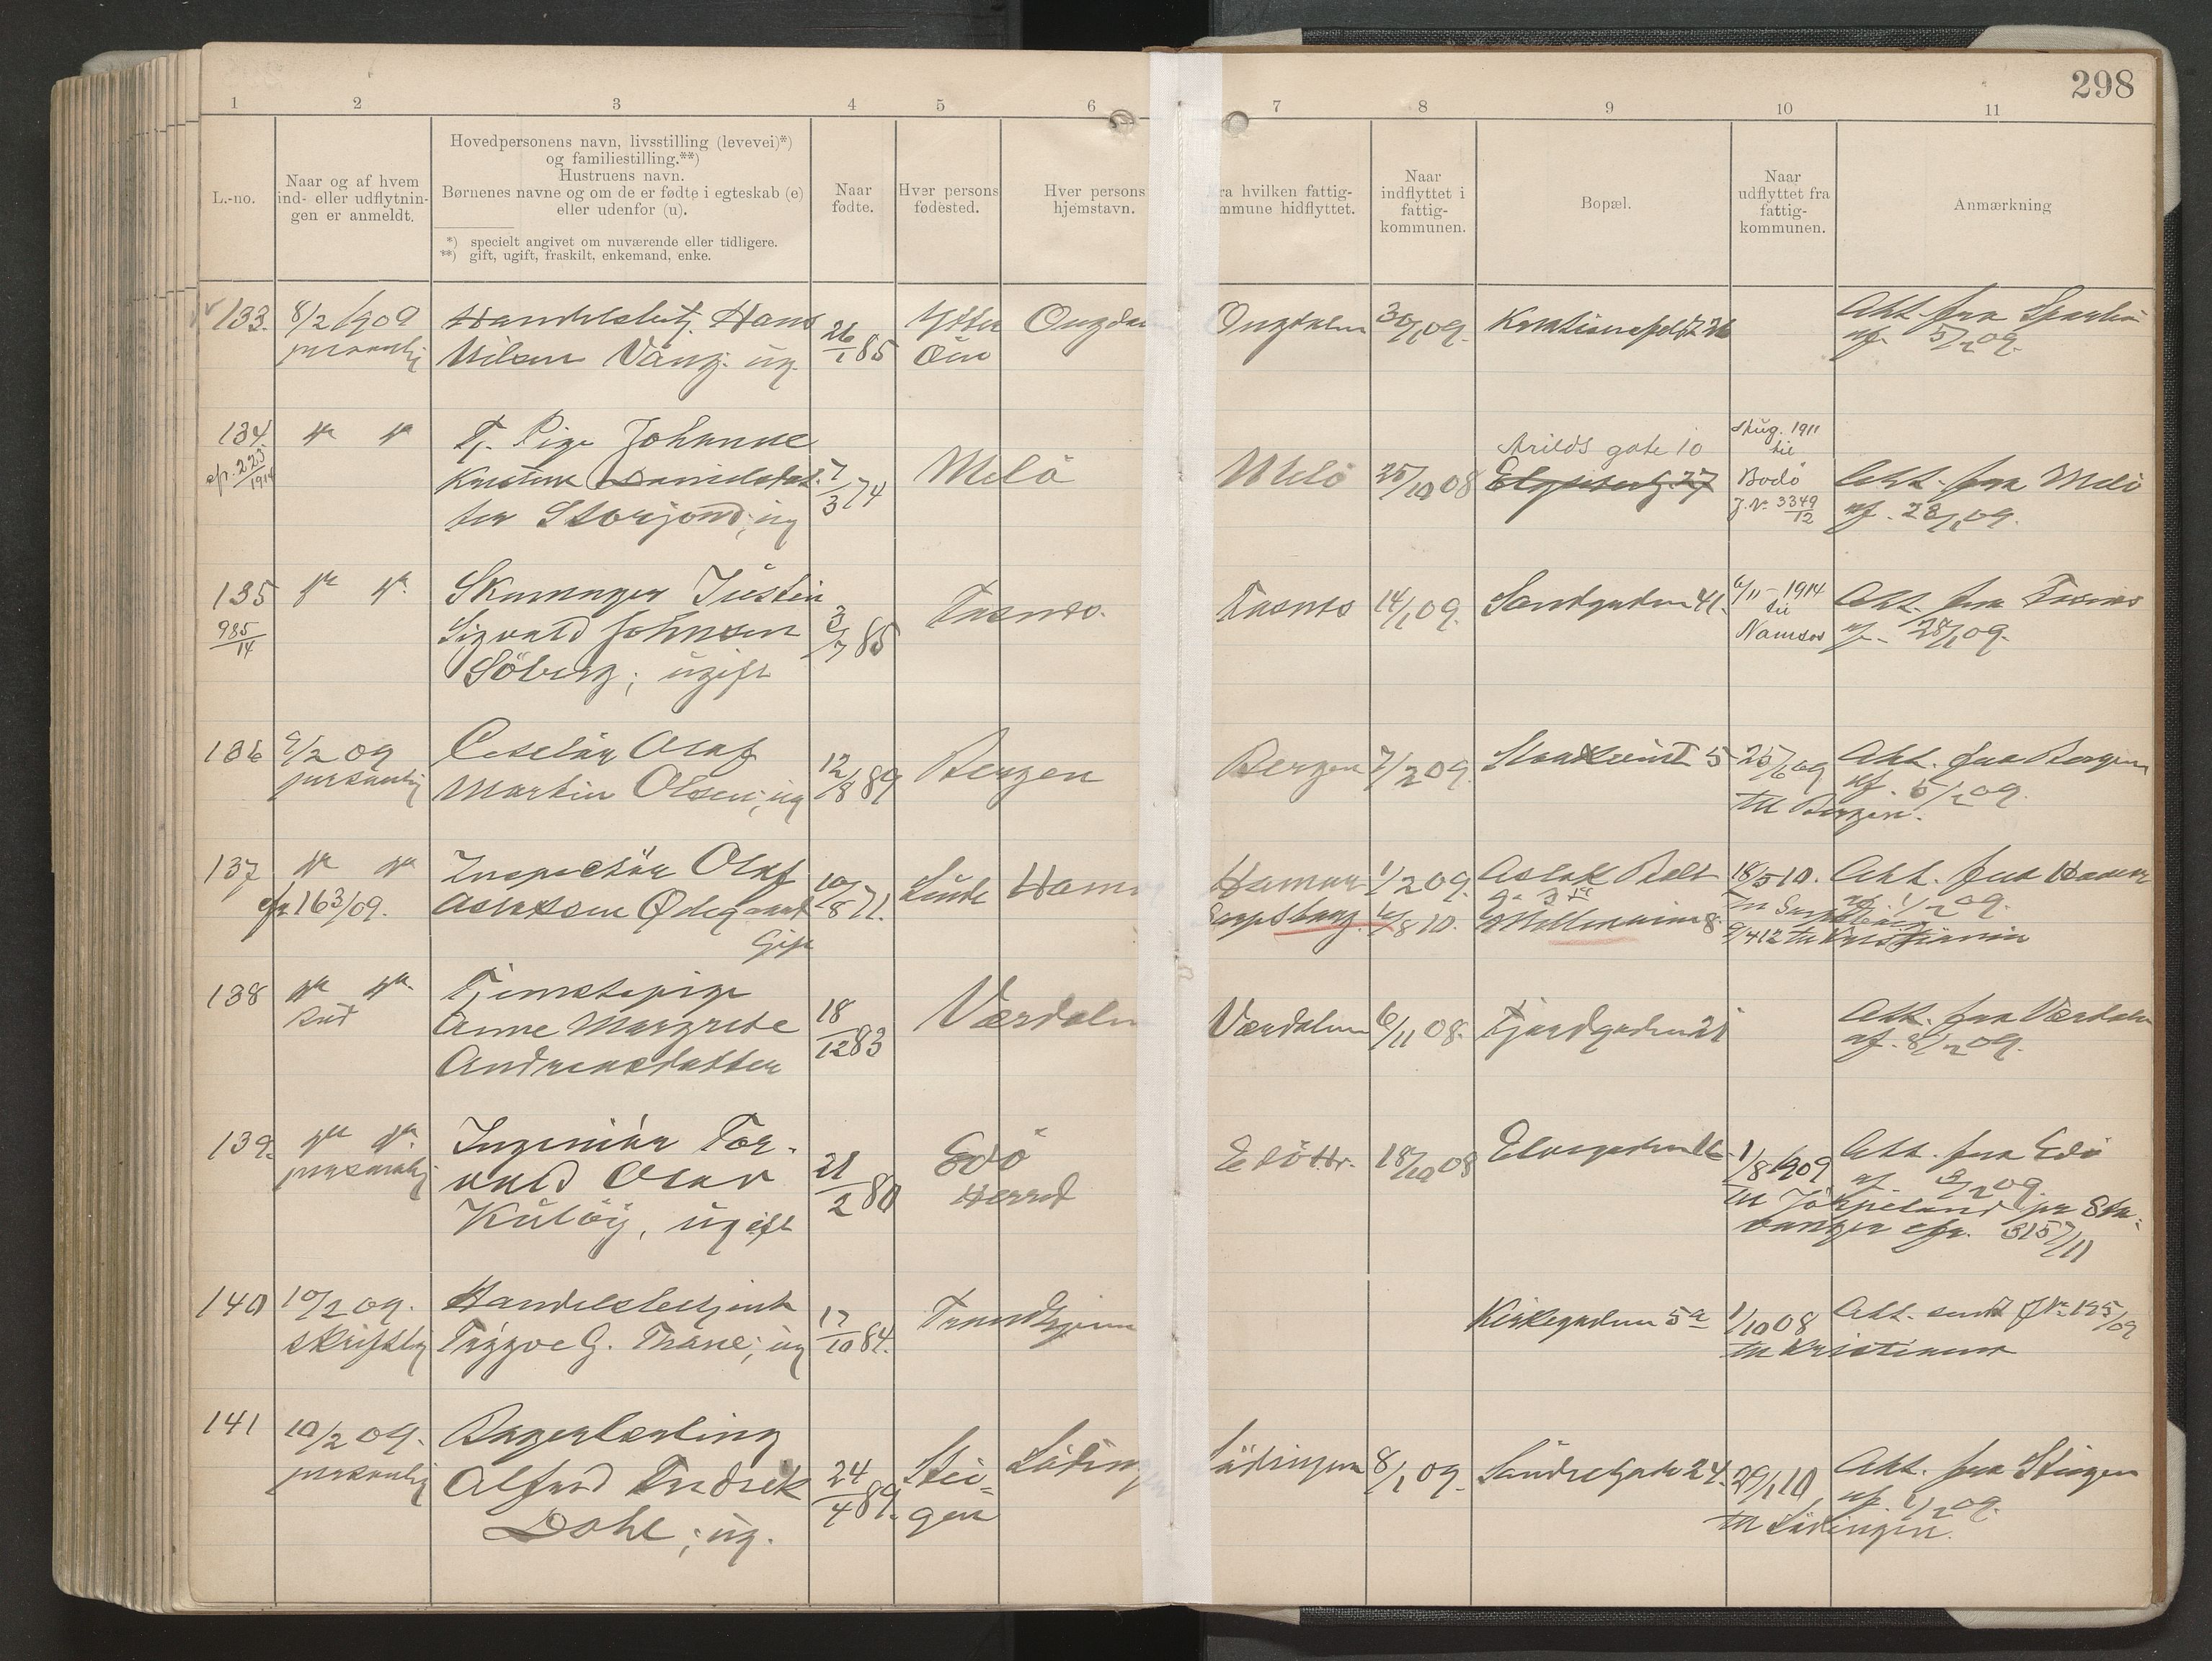 298
1 2 3 4 5 6 7 8 9 10 11
L.-no.
Naar og af hvem
ind- eller udflytnin-
gen er anmeldt.
Hovedpersonens navn, livsstilling (levevei)*)
og familiestilling.**)
Hustruens navn.
Børnenes navne og om de er fødte i egteskab (e)
eller udenfor (u).
*) specielt angivet om nuværende eller tidligere.
**) gift, ugift, fraskilt, enkemand, enke.
Naar
fødte.
Hver persons
fødested.
Hver persons
hjemstavn.
ra hvilken fattig-
mmune hidflyttet.
Naar
indflyttet i
fattig-
kommunen.
Bopæl.
Naar
udflyttet fra
fattig-
kommunen.
Anmærkning
133. 8/2 1909 Handelsbetj. Hans 26/1 85 Ytter Opdal Opdalen 30/1 09. Kristiansfeldt Att. fra
personlig Nilsen Vang. ug. Öien af 5/2 09.
134. " " Tj. Pige Johanne Arilds gate 10 Aug. 1911
cfr. 223/1914 Kristine Danielsdat- 7/3 74 Melö Melö 25/10 08 til
ter Storjord; ug Bodö Att. fra Melö
J.No 3349/12 af. 28/1 09.
135 " " Skomager Justin 3/7 85 Tusnes. Tusnes 14/1 09. Sandgaden 41. 6/11 - 1914 Att. fra Tusnes
985/14 Sigvald Johnsen til af. 28/1 09.
Söberg; ugift Namsos
136 9/2 09 Olaf 12/8 89 Bergen Bergen 7/2 09. 5 25/6 09 Att. fra Bergen
personlig Martin Olsen; ug til Bergen. af. 5/2 09.
137 " " Inspektör Olaf 10/8 71. Lunde Ham Hamar 1/2 09. Aslak Bolt 18/5 10. Att. fra Hamar
cfr 163/09. Aslaksen Ødegaard g. 3 til Sarpsborg af. 1/2 09.
Gift Sarpsborg. 16/8 10. Møllenberg 8. 9/4 12 til Kristiania
138 " " Tjenestepige 18/12 83 Værdalen Værdalen 6/11 08. Fjordgaden 21 Att. fra Værdalen
bud Anne Margrete af. 8/2 09.
Andreasdatter
139. " " Ingeniör Tor- 21/2 80 Edö Edö Hr. 18/10 08 Elvegaden 1/8 1909 Att. fra Edö
personlig vald Olav Herred til Jörpeland pr Sta- af. 3/2 09.
Kulöy, ugift vanger cfr. 3157/11
140 10/2 09. Handelsbetjent 17/10 84. Trondhjem Kirkegaden 5a 1/10 08 Att. sendt J No 195/09
skriftlig Trygve G. Thane; ug til Kristiania
141 10/2 09. Bagerlærling 24/4 89. Stei- Löding Lödingen 8/1 09. Söndregate 24. 29/1 10 Att. fra Steigen
personlig Alfred Fredrik gen til Lödingen. af. 1/2 09.
Dahl; ug.